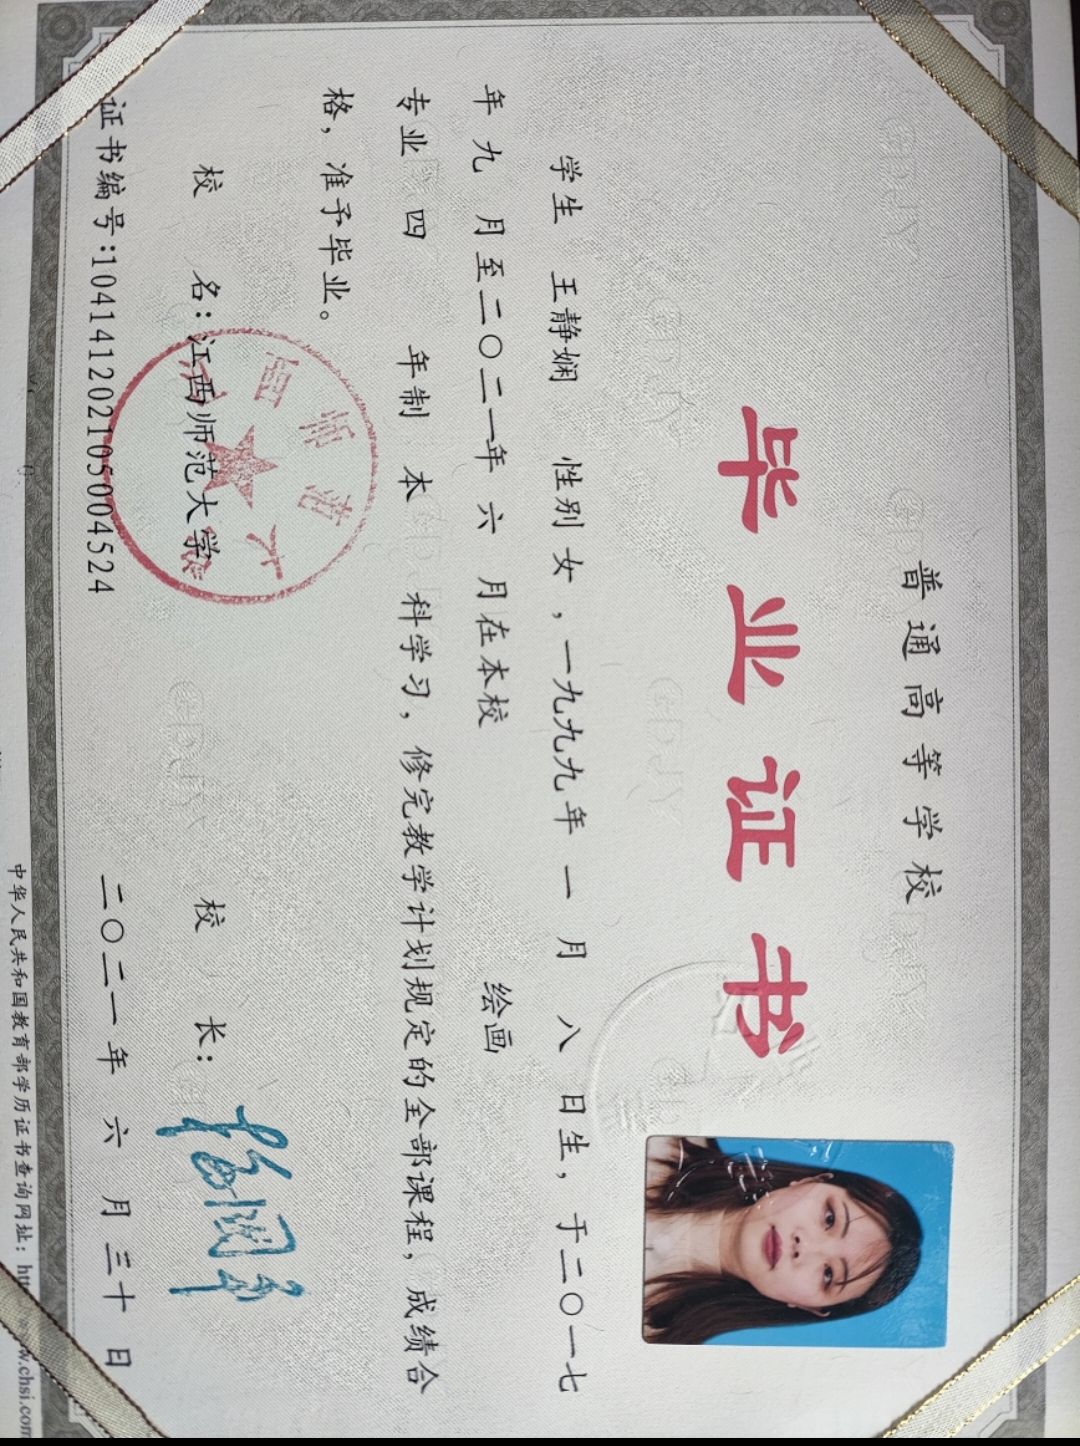 普通高等学校
毕业证书
学生 王静娴 性别 女，一九九九年 一 月 八 日生，于二〇一七
年 九 月至二〇二一年 六 月在本校 绘画
专业 四 年制 本 科学习，修完教学计划规定的全部课程，成绩合
格，准予毕业。
校 名：江西师范大学 校 长：
证书编号：104141202105004524 二〇二一年 六 月三十 日
中华人民共和国教育部学历证书查询网址：